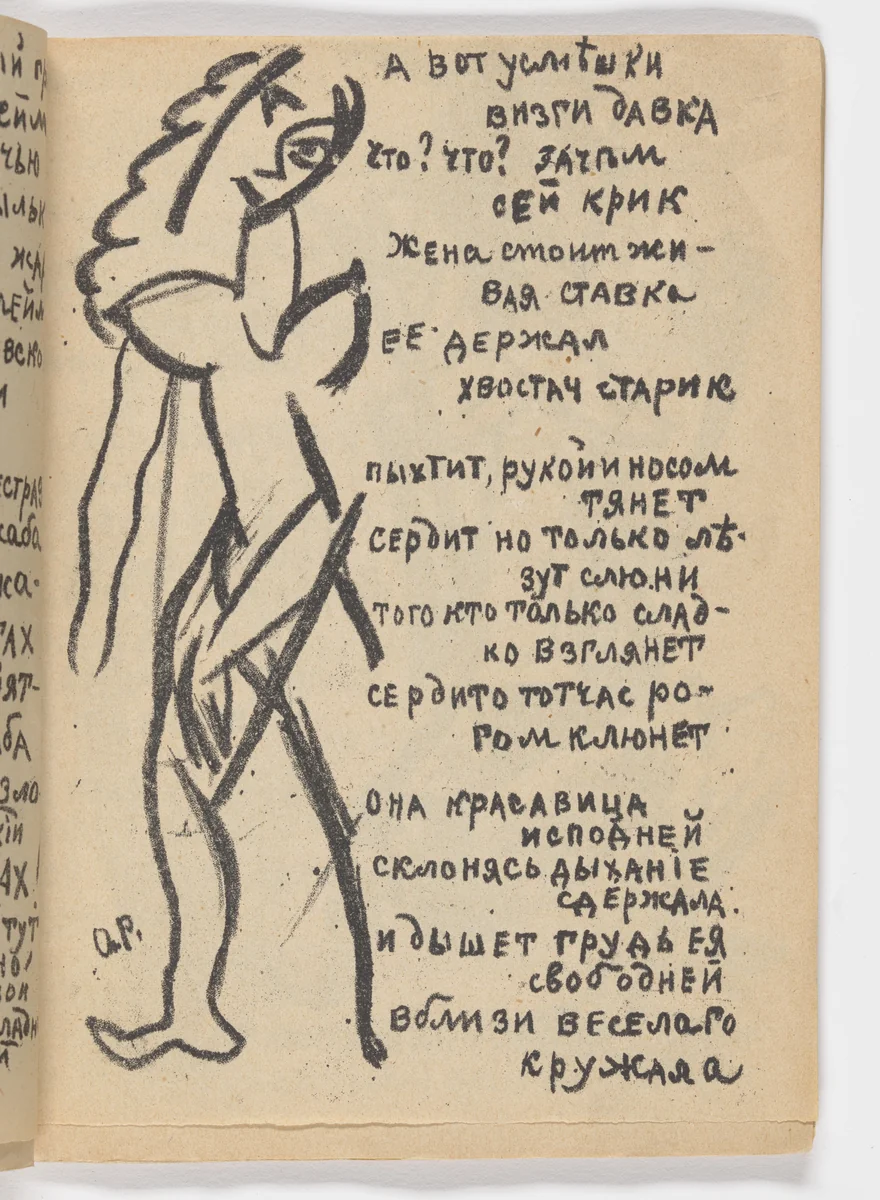 А вот усмѣшки
визги давка
что? что? зачѣм
сей крик
жена стоит жи-
вая ставка
ЕЕ держал
хвостач старик
пыхтит, рукой и носом
тянет
сердит но только лѣ-
зут слюни
того кто только слад-
ко взглянет
сердито тотчас ро-
гом клюнет
она красавица
исподней
склонясь дыханiе
сдержала.
и дышет грудь ея
свободней
вблизи веселаго
кружала
а.р.